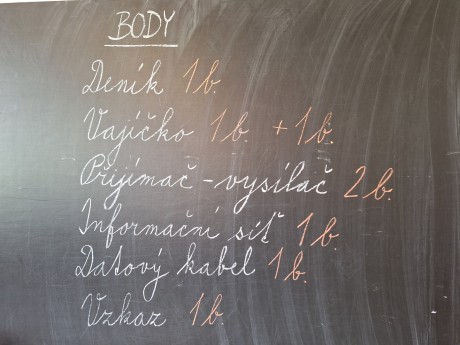 BODY
Deník 1b.
Vajíčko 1b. + 1b.
Přijímač - vysílač 2b.
Informační síť 1b.
Datový kabel 1b.
Vzkaz 1b.